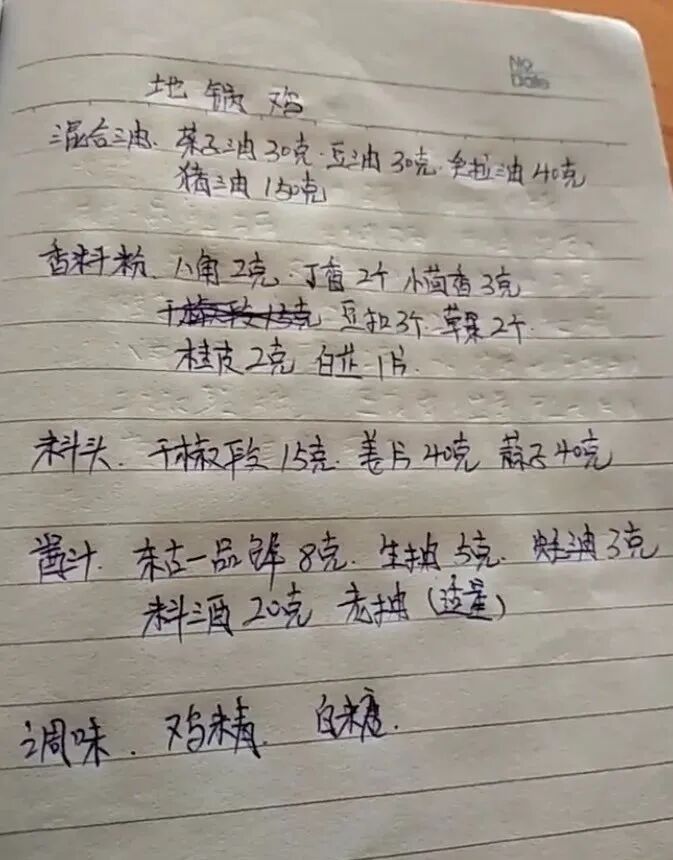 No
Date
地锅鸡
混合油. 菜子油30克. 豆油30克. 色拉油40克
猪油150克
香料粉. 八角2克. 丁香2个 小茴香3克
干椒段15克 豆扣3个. 草果2个.
桂皮2克 白芷1片.
料头. 干椒段15克. 姜片40克 蒜子40克
酱汁. 东古一品鲜8克. 生抽5克. 蚝油3克
料酒20克 老抽(适量)
调味. 鸡精. 白糖.